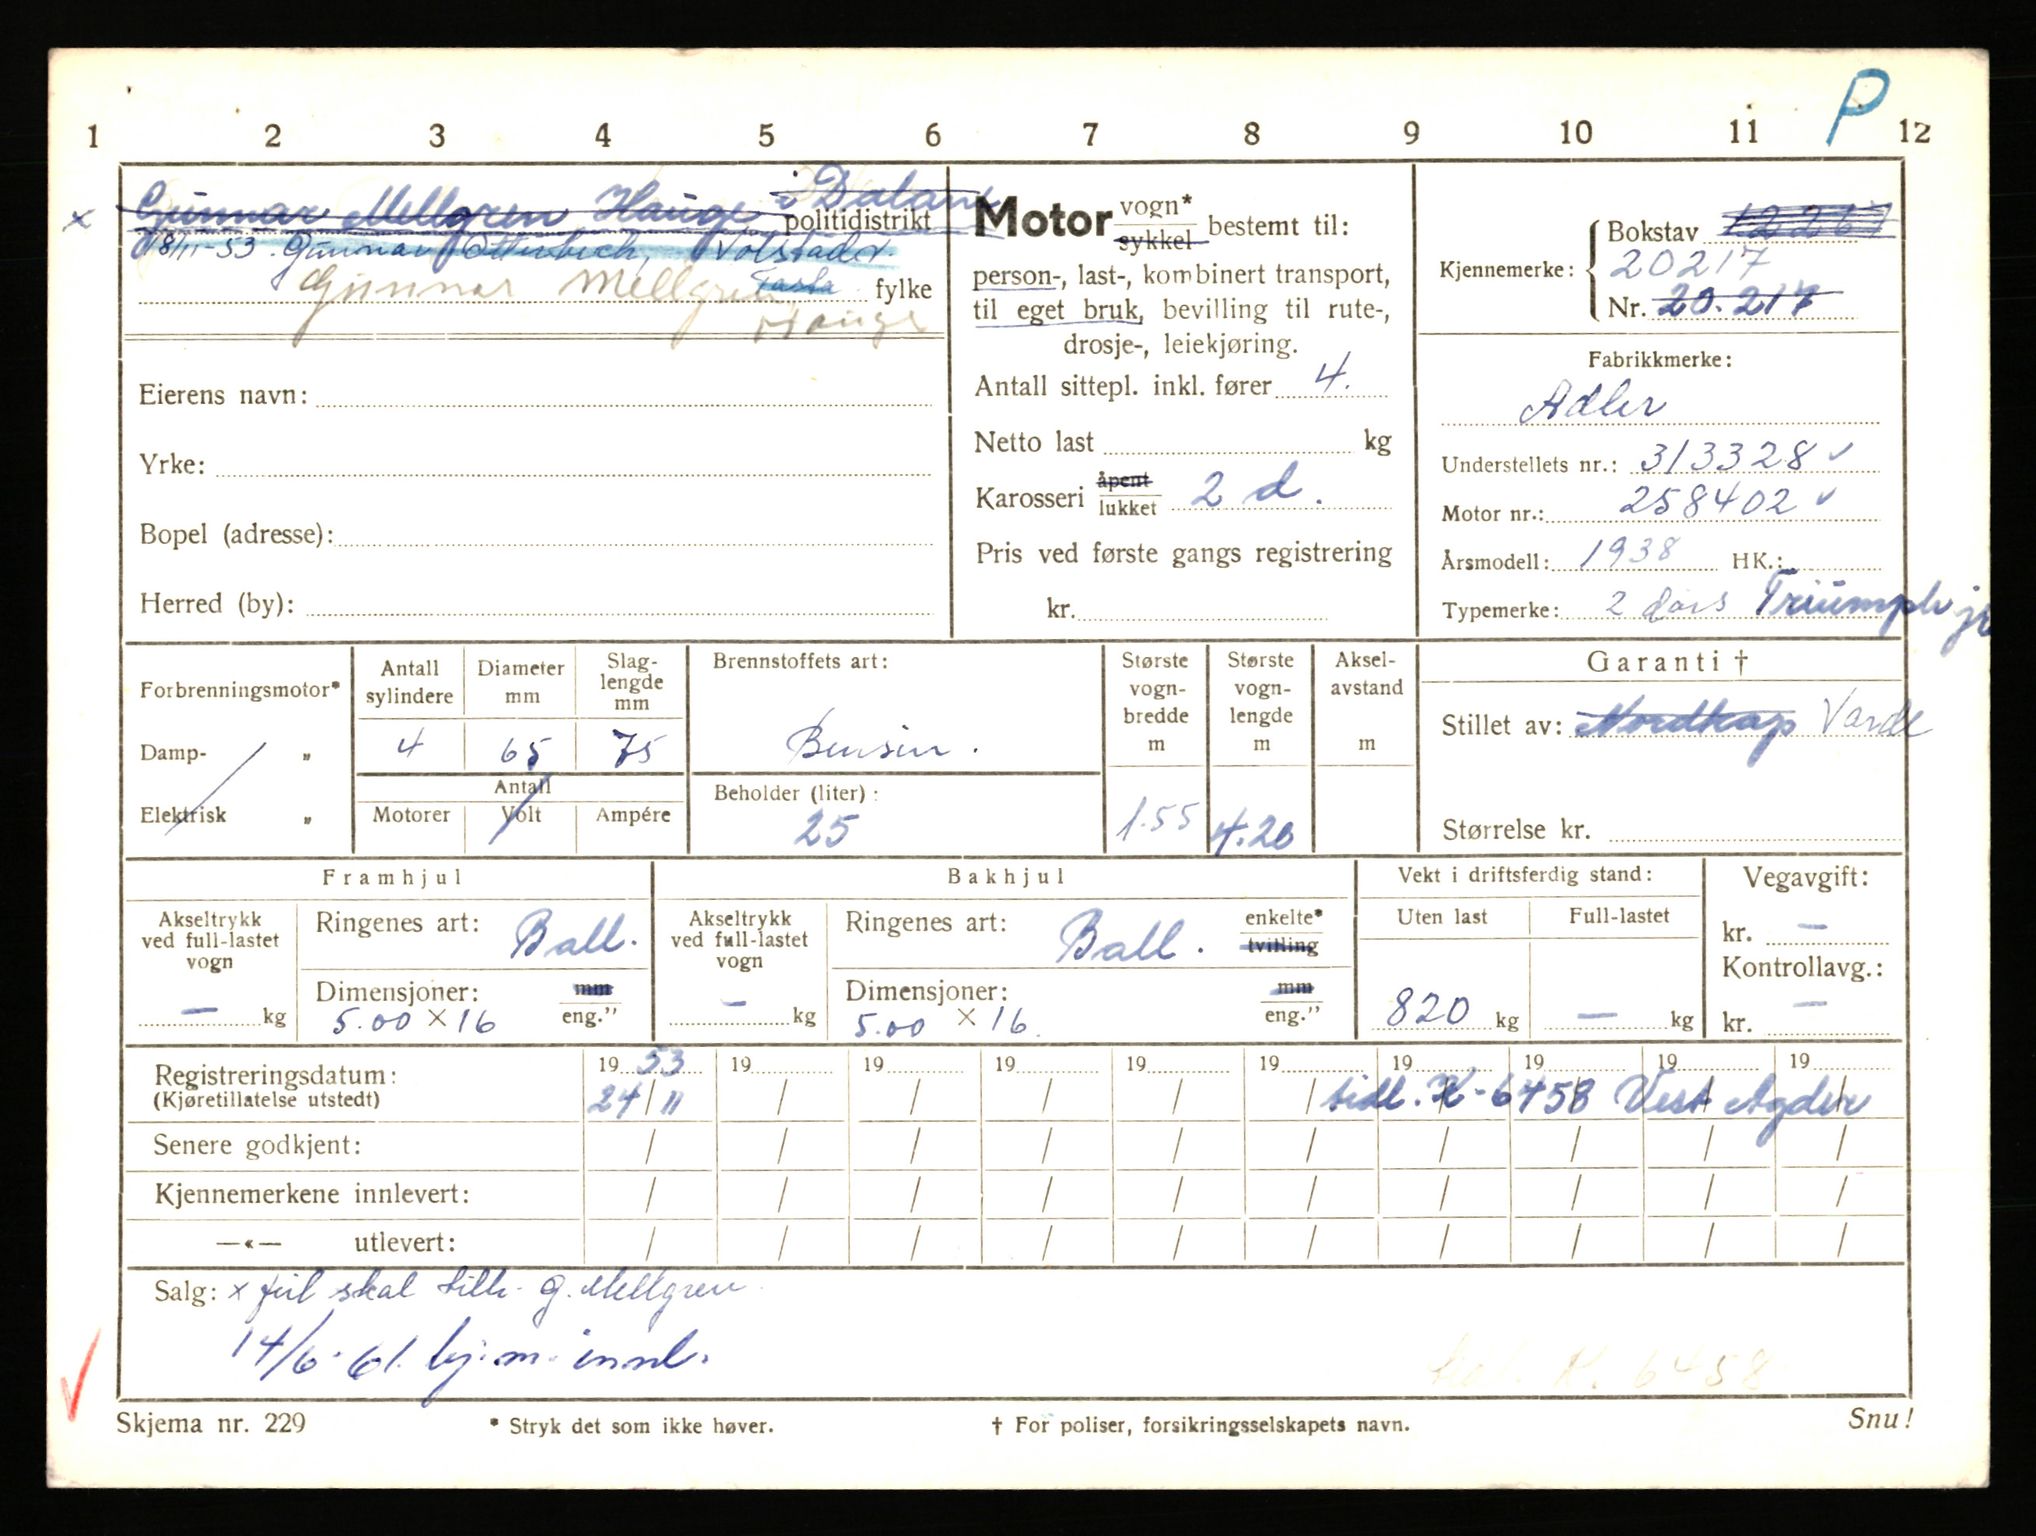 P
1 2 3 4 5 6 7 8 9 10 11 12
x Gunnar Mellgren Hauge i Dalane
politidistrikt
18/11-53. Gunnar Otterbech, Volstadv.
Tasta
Gunnar Mellgren
Hauge
fylke
Eierens navn:
Yrke:
Bopel (adresse):
Herred (by):
Motor vogn* sykkel bestemt til:
person-, last-, kombinert transport,
til eget bruk, bevilling til rute-,
drosje-, leiekjøring.
Antall sittepl. inkl. fører 4.
Netto last kg
Karosseri åpent lukket 2 d.
Pris ved første gangs registrering
kr.
Kjennemerke: Bokstav
20217
Nr. 20.217
Fabrikkmerke:
Adler
Understellets nr.: 313328 ✓
Motor nr.: 258402 ✓
Årsmodell: 1938 HK.:
Typemerke: 2 dørs Triumph jr
Forbrenningsmotor*
Damp- "
Elektrisk "
Antall sylindere
4
Diameter mm
65
Slag-lengde mm
75
Antall
Motorer Volt Ampére
Brennstoffets art:
Bensin.
Beholder (liter):
25
Største vogn-bredde m
1.55
Største vogn-lengde m
4.20
Aksel-avstand m
Garanti †
Stillet av: Nordkap Varde
Størrelse kr.
Framhjul
Akseltrykk ved full-lastet vogn
— kg
Ringenes art: Ball.
Dimensjoner: mm eng."
5.00 × 16
Bakhjul
Akseltrykk ved full-lastet vogn
— kg
Ringenes art: Ball. enkelte* tvilling
Dimensjoner: mm eng."
5.00 × 16.
Vekt i driftsferdig stand:
Uten last Full-lastet
820 kg — kg
Vegavgift:
kr. —
Kontrollavg.:
kr. —
Registreringsdatum: 19 53 19 19 19 19 19 19 19 19 19
(Kjøretillatelse utstedt) 24/11 / / / / / tidl. K-6458 Vest Agder
Senere godkjent: / / / / / / / / / /
Kjennemerkene innlevert: / / / / / / / / / /
—«— utlevert: / / / / / / / / / /
Salg: x feil skal tilh. G. Mellgren
14/6-61. kj.m. innl.
K. 6458
✓
Skjema nr. 229 * Stryk det som ikke høver. † For poliser, forsikringsselskapets navn. Snu!